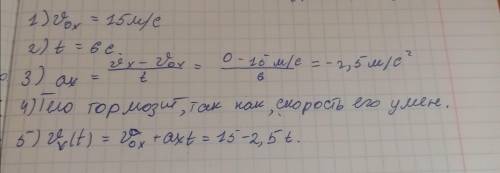 1) v₀ₓ = 15 м/с
2) t = 6 с.
3) aₓ = (vₓ - v₀ₓ)/t = (0 - 15 м/с)/6 = -2,5 м/с²
4) Тело тормозит, так как, скорость его умен.
5) vₓ(t) = v₀ₓ + aₓt = 15 - 2,5 t.